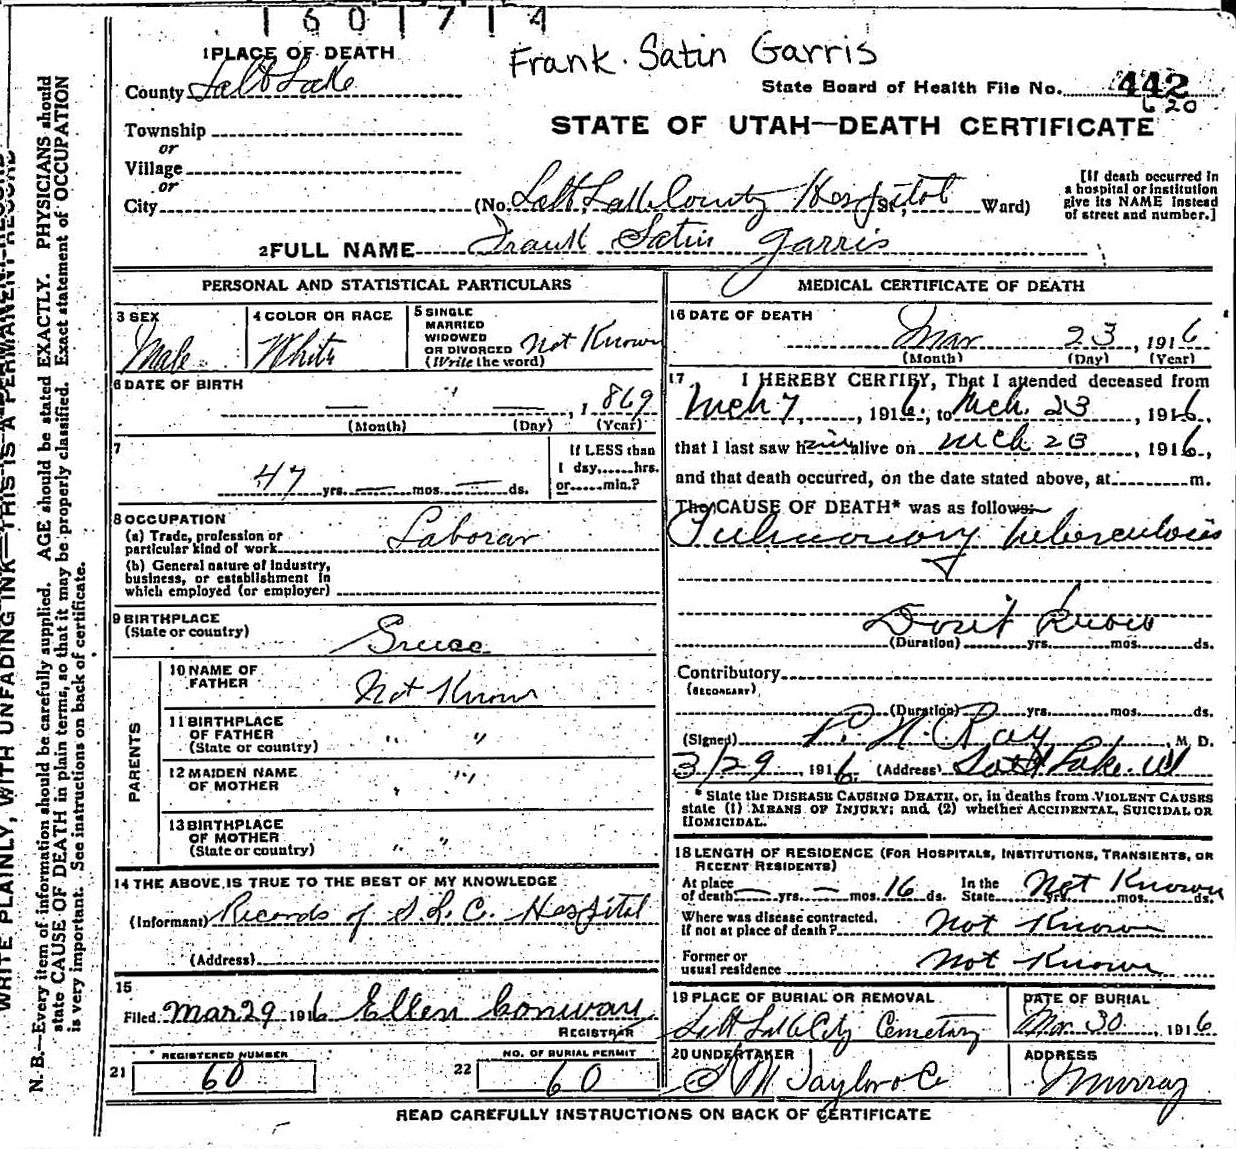 1601714
Frank. Satin Garris
1 PLACE OF DEATH
County Salt Lake
State Board of Health File No. 442
620
Township
or
Village
or
City
STATE OF UTAH—DEATH CERTIFICATE
(No. Salt Lake County Hospital St., Ward)
[If death occurred in
a hospital or institution
give its NAME instead
of street and number.]
2 FULL NAME Frank Satin Garris
PERSONAL AND STATISTICAL PARTICULARS
3 SEX
Male
4 COLOR OR RACE
White
5 SINGLE
MARRIED
WIDOWED
OR DIVORCED
(Write the word)
Not Known
6 DATE OF BIRTH
— — , 1 869
(Month) (Day) (Year)
7
47 yrs. — mos. — ds.
If LESS than
1 day,......hrs.
or......min.?
8 OCCUPATION
(a) Trade, profession or
particular kind of work Laborar
(b) General nature of industry,
business, or establishment in
which employed (or employer)
9 BIRTHPLACE
(State or country)
Greece
PARENTS
10 NAME OF
FATHER
Not Known
11 BIRTHPLACE
OF FATHER
(State or country) " "
12 MAIDEN NAME
OF MOTHER " "
13 BIRTHPLACE
OF MOTHER
(State or country) " "
14 THE ABOVE IS TRUE TO THE BEST OF MY KNOWLEDGE
(Informant) Records of S. L. C. Hospital
(Address)
15
Filed Mar 29 1916 Ellen Conway
REGISTRAR
21 REGISTERED NUMBER
60
22 NO. OF BURIAL PERMIT
60
MEDICAL CERTIFICATE OF DEATH
16 DATE OF DEATH
Mar 23, 1916
(Month) (Day) (Year)
17 I HEREBY CERTIFY, That I attended deceased from
Mch 7, 1916, to Mch. 23, 1916,
that I last saw him alive on Mch 23, 1916,
and that death occurred, on the date stated above, at m.
The CAUSE OF DEATH* was as follows:
Pulmonary tuberculosis
Don't Know
(Duration) yrs. mos. ds.
Contributory
(SECONDARY)
(Duration) yrs. mos. ds.
(Signed) P. N. Ray, M. D.
3/29, 1916. (Address) Salt Lake. Ut
* State the DISEASE CAUSING DEATH, or, in deaths from VIOLENT CAUSES
state (1) MEANS OF INJURY; and (2) whether ACCIDENTAL, SUICIDAL OR
HOMICIDAL.
18 LENGTH OF RESIDENCE (FOR HOSPITALS, INSTITUTIONS, TRANSIENTS, OR
RECENT RESIDENTS)
At place
of death — yrs. — mos. 16 ds.
In the
State Not Known yrs. mos. ds.
Where was disease contracted,
if not at place of death? Not Known
Former or
usual residence Not Known
19 PLACE OF BURIAL OR REMOVAL
Salt Lake City Cemetary
DATE OF BURIAL
Mar 30, 1916
20 UNDERTAKER
S M Taylor & Co
ADDRESS
Murray
READ CAREFULLY INSTRUCTIONS ON BACK OF CERTIFICATE
WRITE PLAINLY, WITH UNFADING INK—THIS IS A PERMANENT RECORD
N. B.—Every item of information should be carefully supplied. AGE should be stated EXACTLY. PHYSICIANS should
state CAUSE OF DEATH in plain terms, so that it may be properly classified. Exact statement of OCCUPATION
is very important. See instructions on back of certificate.